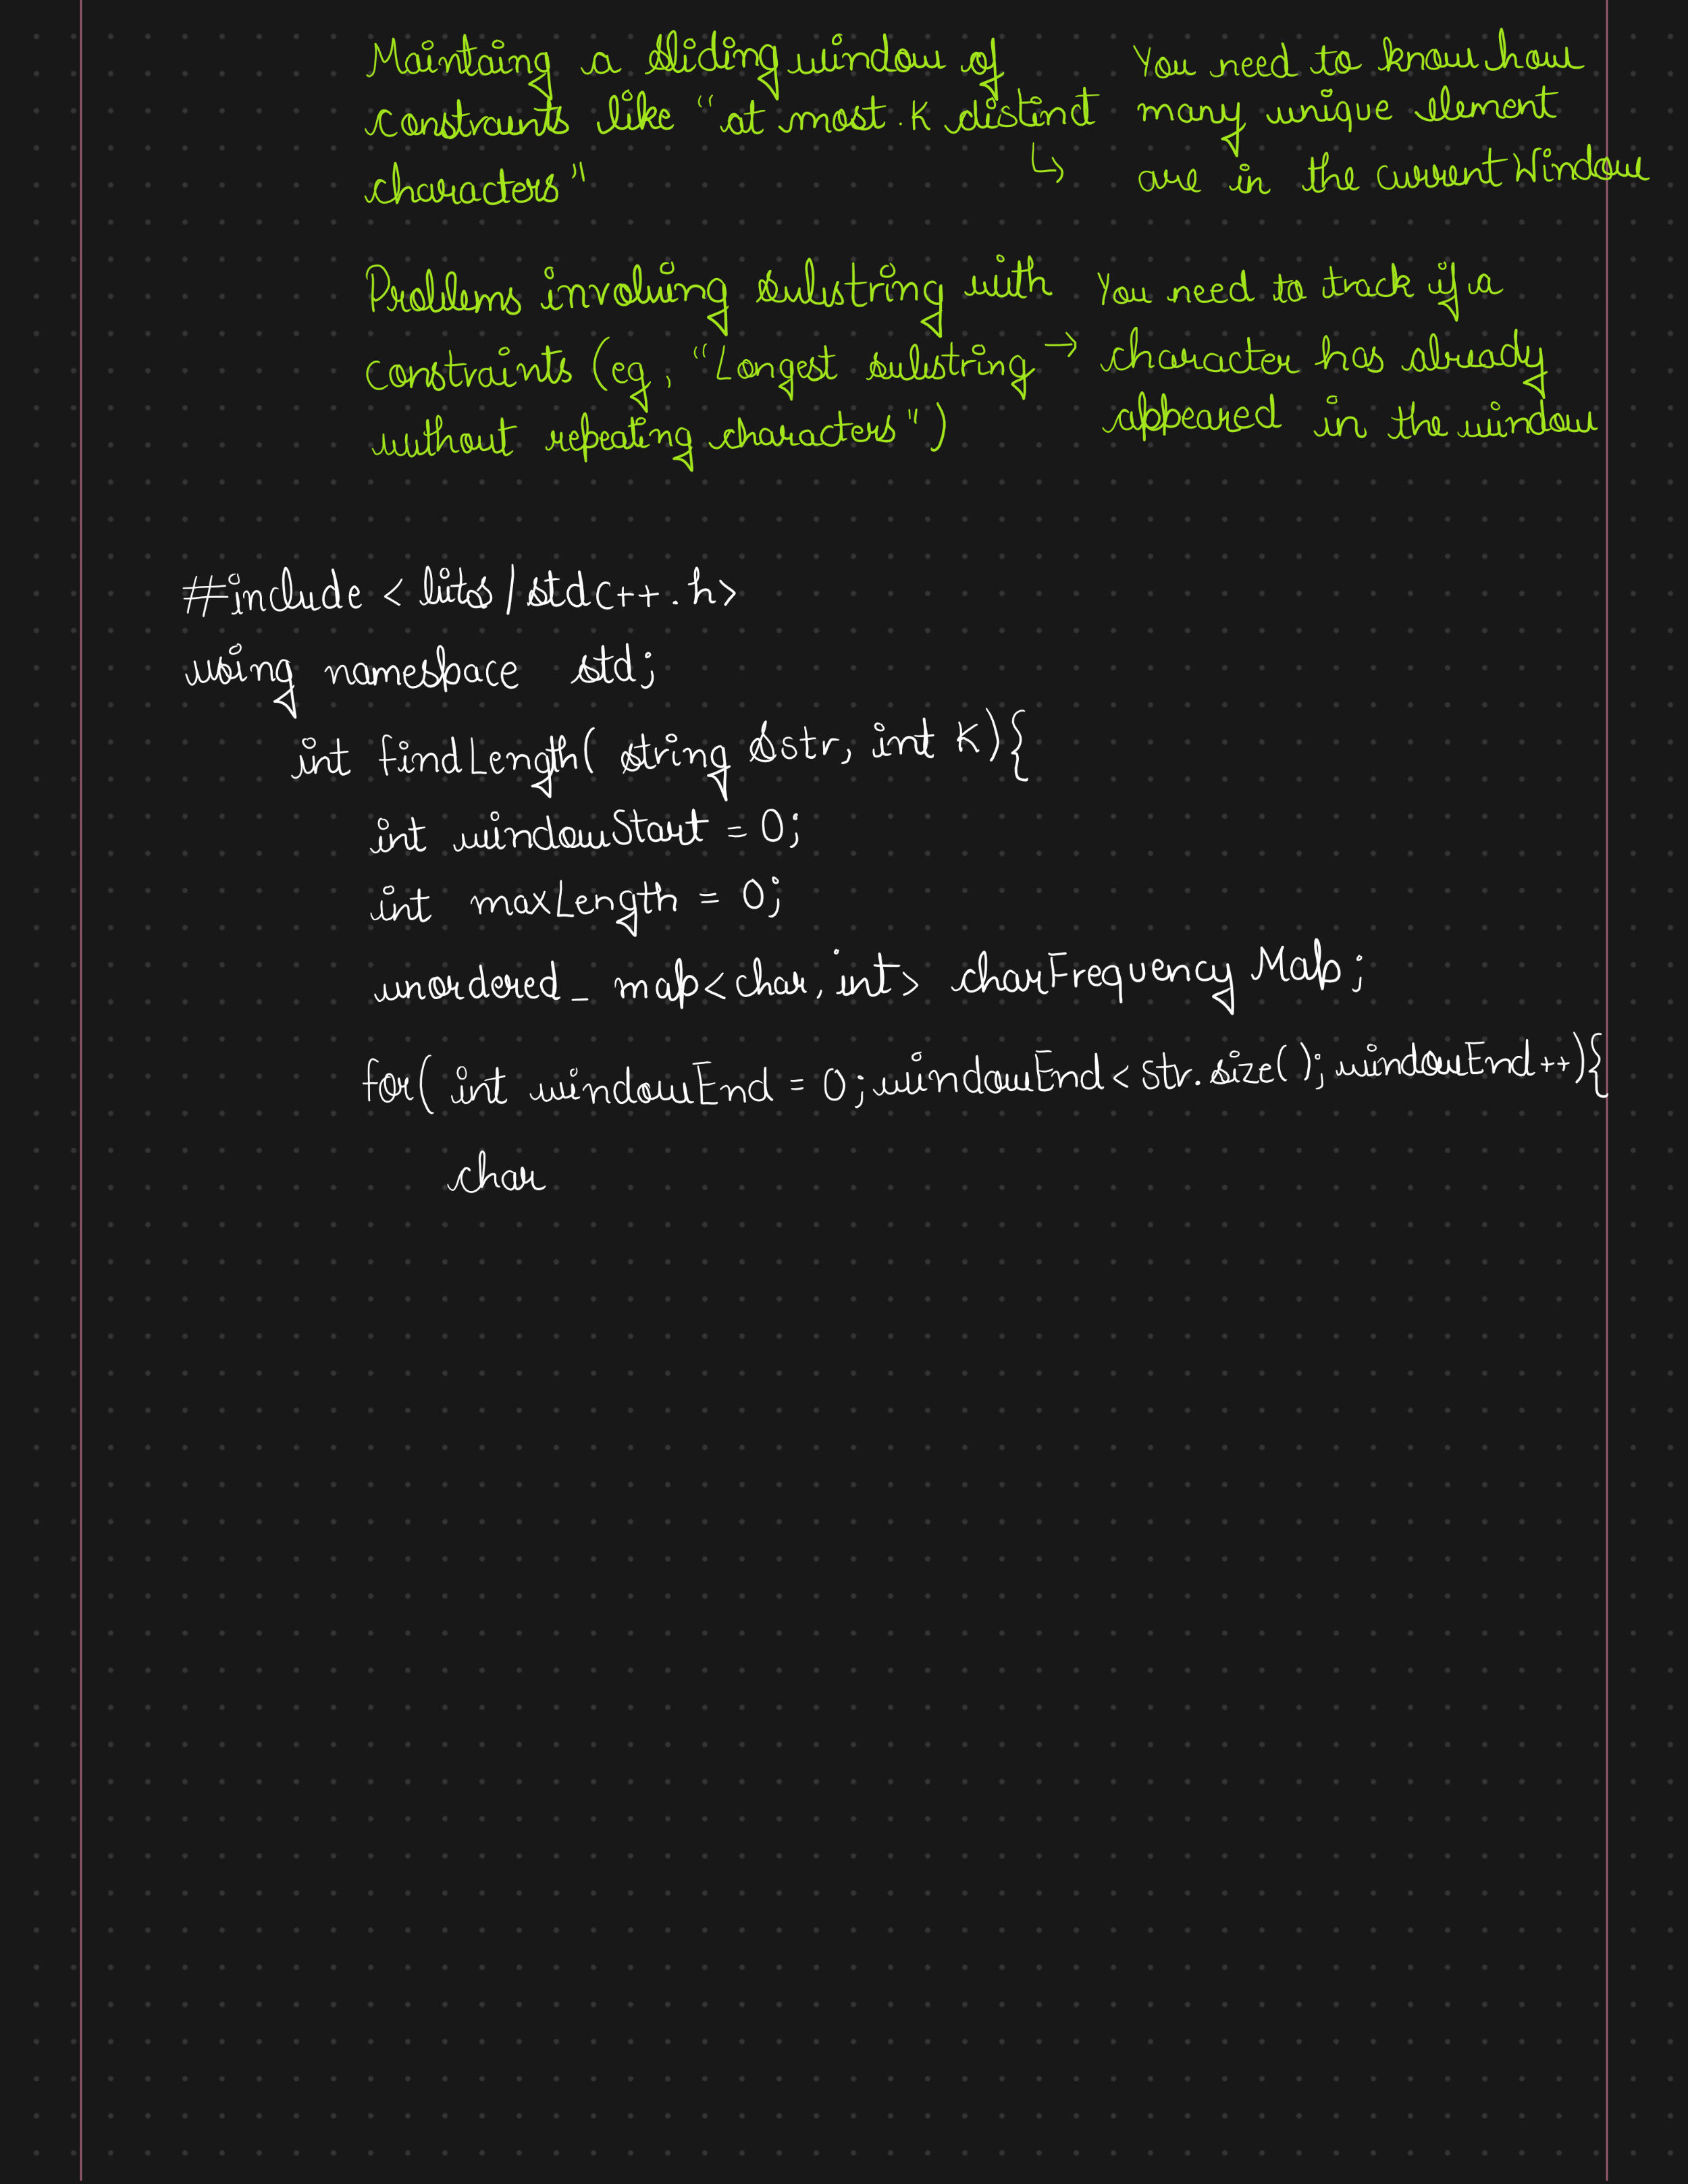 Maintaing a sliding window of
constraints like "at most K distinct
characters"
↳ You need to know how
many unique element
are in the current Window
Problems involving substring with
constraints (eg, "Longest substring
without repeating characters")
→ You need to track if a
character has already
appeared in the window
#include <bits/stdc++.h>
using namespace std;
int findLength( string &str, int K){
int windowStart = 0;
int maxLength = 0;
unordered_map<char, int> charFrequency Map;
for( int windowEnd = 0; windowEnd < str.size(); windowEnd++){
char